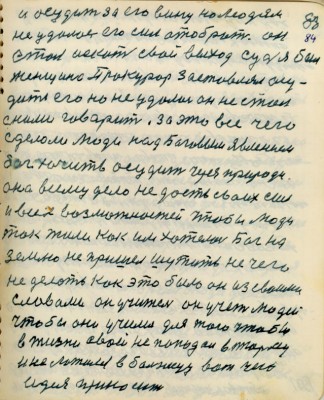 и осудит за его вину но людям
не удалося его сил отобрать. он
стал искать свой выход судья был
женщина Прокурор заставлял осу-
дить его но не удалос он не стал
сними говарить. За это все чего
сделали люди над Баговым явлением
Бог хочить осудит через природу.
она всему дело не дасть своих сил
и всех возможностей чтобы люди
так жили как им хотелося Бог на
землю не пришел шутить не чего
не делать как это было он из своими
словами он учител он учет людей
чтобы они учили для того чтобы
в жизни свой не попадал в тюрму
и не ложился в балницу вот чего
идея приносит
83
84